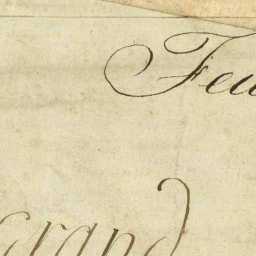 Feu
grand